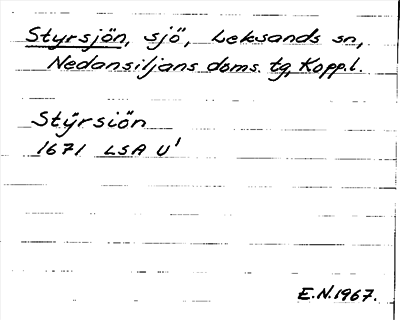 Styrsjön, sjö, Leksands sn,
Nedansiljans doms. tg, Kopp.l.
Stÿrsiön
1671 LSA U¹
E.N.1967.